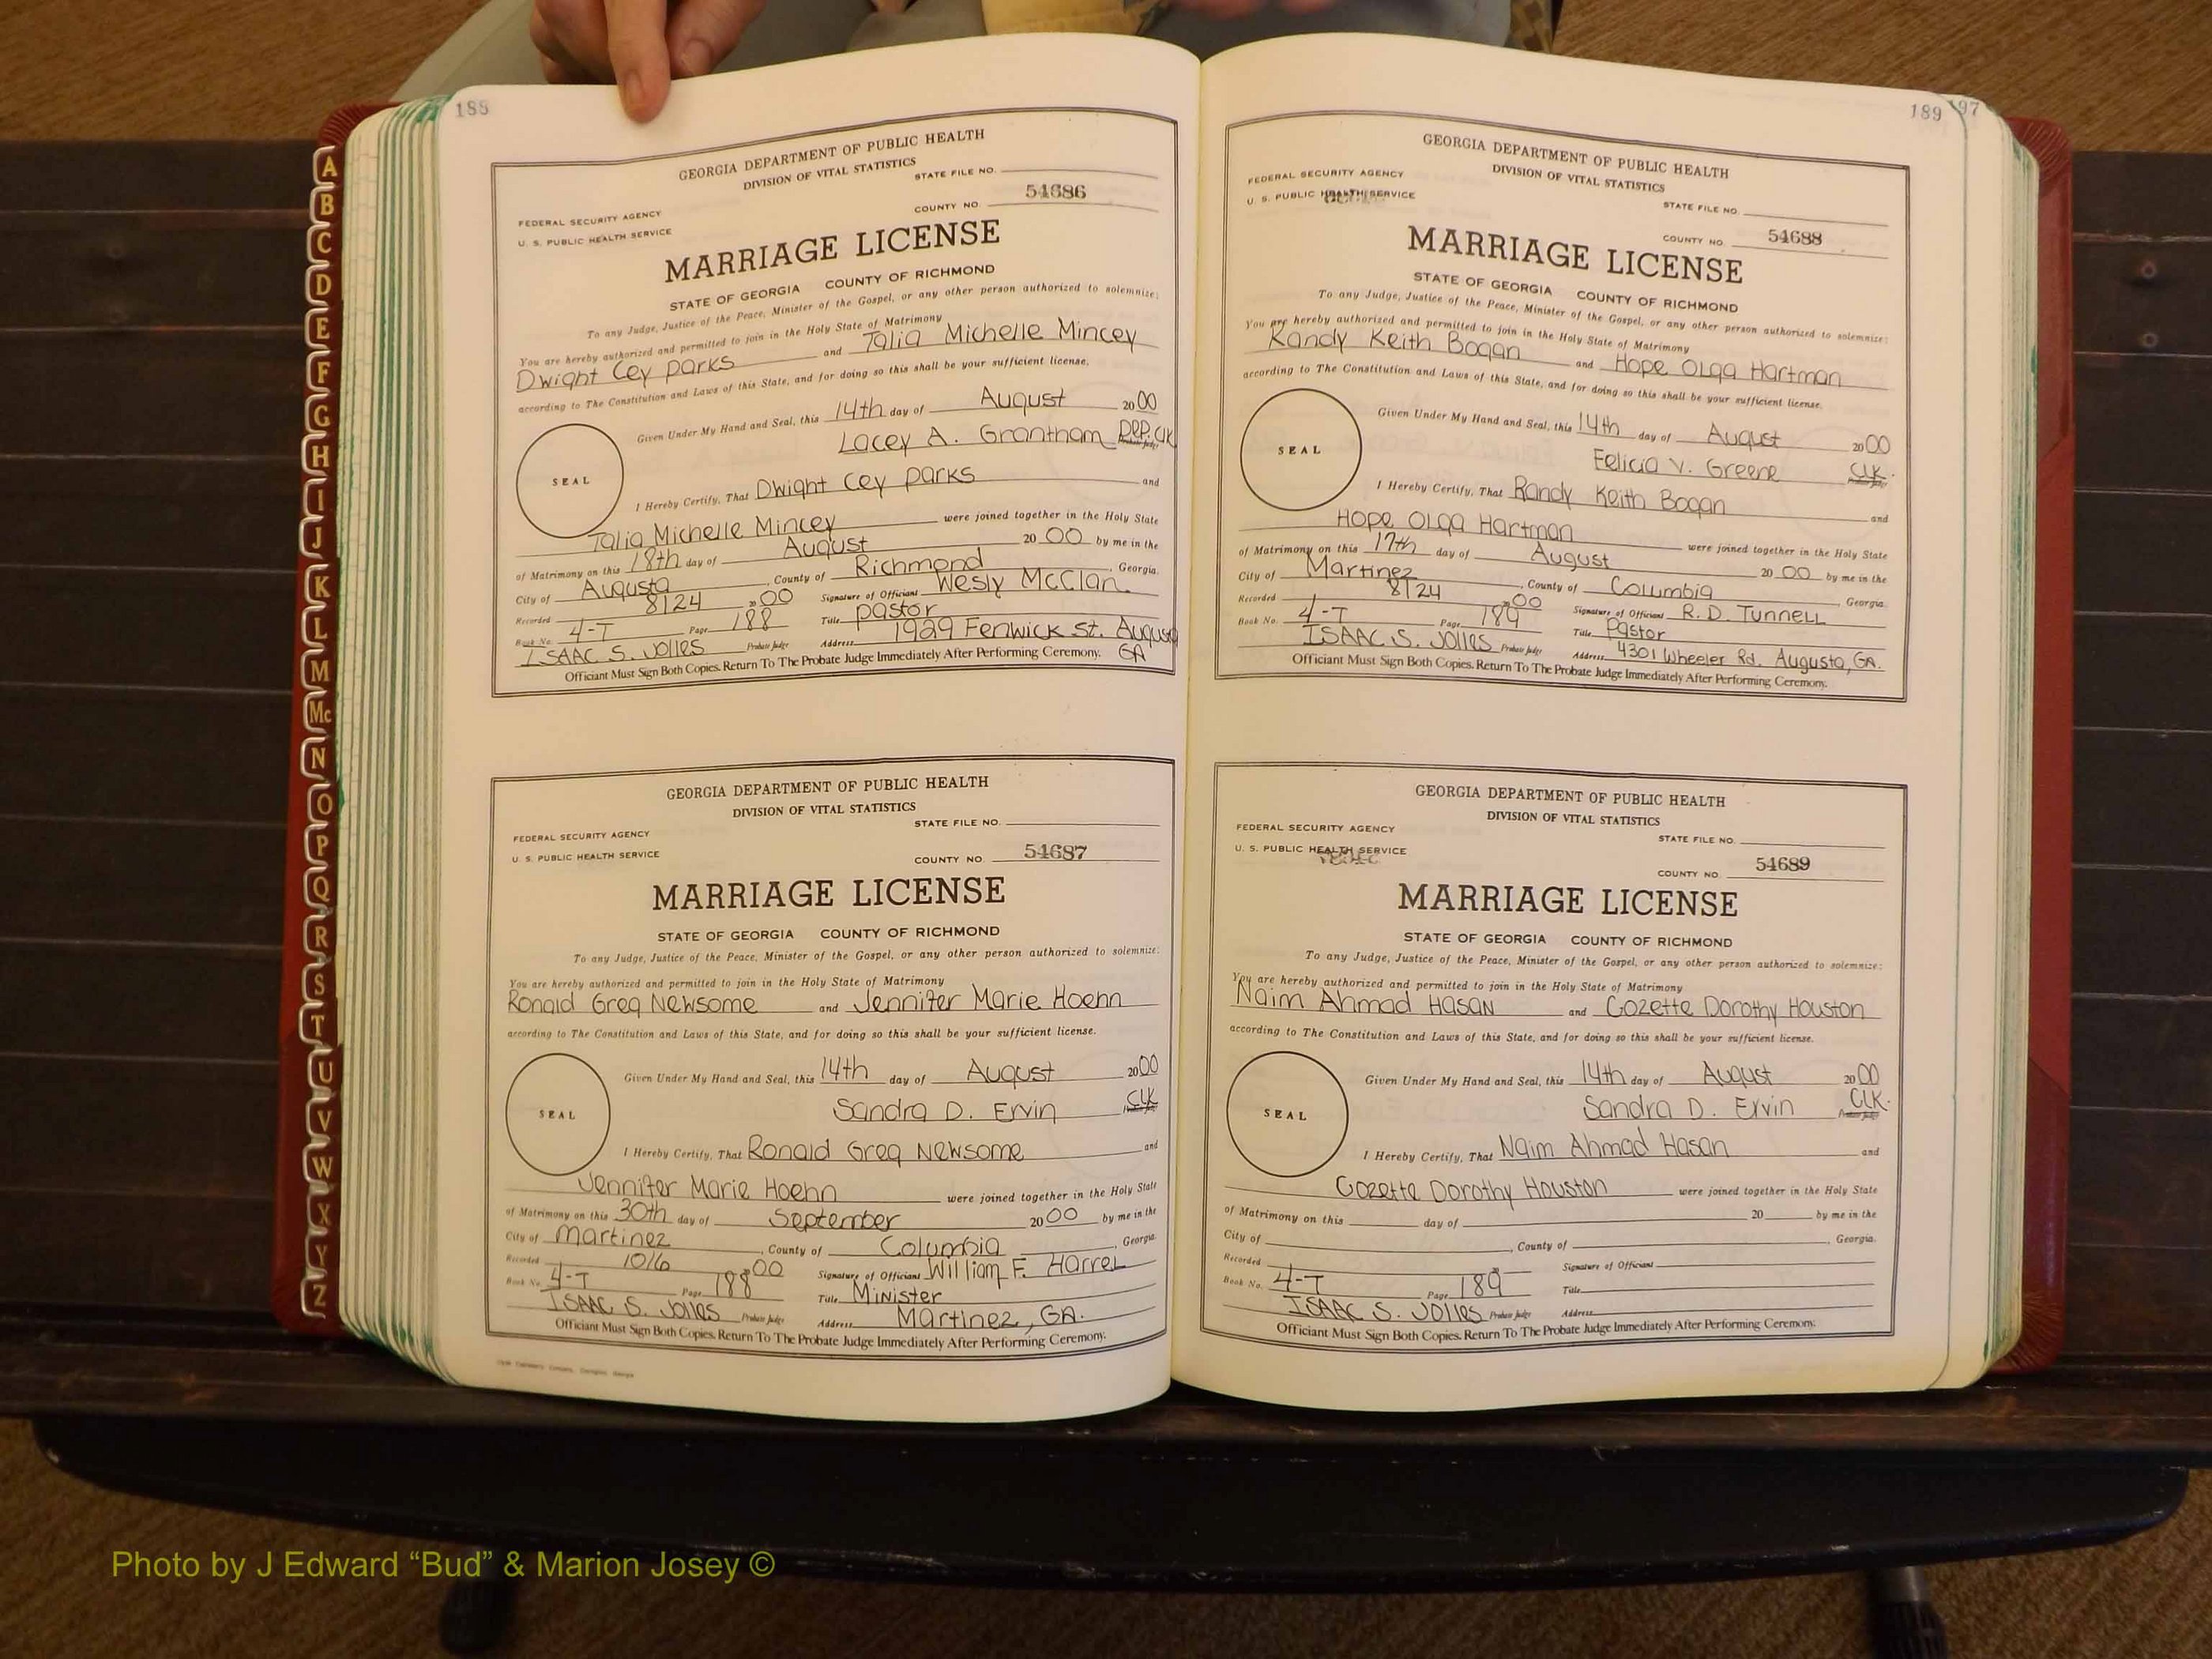 188
GEORGIA DEPARTMENT OF PUBLIC HEALTH
DIVISION OF VITAL STATISTICS
STATE FILE NO.
FEDERAL SECURITY AGENCY
U. S. PUBLIC HEALTH SERVICE
COUNTY NO. 54686
MARRIAGE LICENSE
STATE OF GEORGIA COUNTY OF RICHMOND
To any Judge, Justice of the Peace, Minister of the Gospel, or any other person authorized to solemnize:
You are hereby authorized and permitted to join in the Holy State of Matrimony
Dwight Cey Parks and Talia Michelle Mincey
according to The Constitution and Laws of this State, and for doing so this shall be your sufficient license.
Given Under My Hand and Seal, this 14th day of August 2000
Lacey A. Grantham Dep. Clk
SEAL
I Hereby Certify, That Dwight Cey Parks and
Talia Michelle Mincey were joined together in the Holy State
of Matrimony on this 18th day of August 20 00 by me in the
City of Augusta, County of Richmond, Georgia.
Recorded 8/24 00 Signature of Officiant Wesly McClan
Book No. 4-T Page 188 Title Pastor
ISAAC S. JOlles Probate Judge Address 1929 Fenwick St. Augusta GA
Officiant Must Sign Both Copies. Return To The Probate Judge Immediately After Performing Ceremony.
GEORGIA DEPARTMENT OF PUBLIC HEALTH
DIVISION OF VITAL STATISTICS
STATE FILE NO.
FEDERAL SECURITY AGENCY
U. S. PUBLIC HEALTH SERVICE
COUNTY NO. 54687
MARRIAGE LICENSE
STATE OF GEORGIA COUNTY OF RICHMOND
To any Judge, Justice of the Peace, Minister of the Gospel, or any other person authorized to solemnize:
You are hereby authorized and permitted to join in the Holy State of Matrimony
Ronald Greg Newsome and Jennifer Marie Hoehn
according to The Constitution and Laws of this State, and for doing so this shall be your sufficient license.
Given Under My Hand and Seal, this 14th day of August 2000
Sandra D. Ervin Clk
SEAL
I Hereby Certify, That Ronald Greg Newsome and
Jennifer Marie Hoehn were joined together in the Holy State
of Matrimony on this 30th day of September 20 00 by me in the
City of Martinez, County of Columbia, Georgia.
Recorded 10/6 00 Signature of Officiant William F. Harrel
Book No. 4-T Page 188 Title Minister
ISAAC S. JOlles Probate Judge Address Martinez, GA.
Officiant Must Sign Both Copies. Return To The Probate Judge Immediately After Performing Ceremony.
189 97
GEORGIA DEPARTMENT OF PUBLIC HEALTH
DIVISION OF VITAL STATISTICS
FEDERAL SECURITY AGENCY
U. S. PUBLIC HEALTH SERVICE
STATE FILE NO.
COUNTY NO. 54688
MARRIAGE LICENSE
STATE OF GEORGIA COUNTY OF RICHMOND
To any Judge, Justice of the Peace, Minister of the Gospel, or any other person authorized to solemnize:
You are hereby authorized and permitted to join in the Holy State of Matrimony
Randy Keith Bogan and Hope Olga Hartman
according to The Constitution and Laws of this State, and for doing so this shall be your sufficient license.
Given Under My Hand and Seal, this 14th day of August 2000
Felicia V. Greene Clk.
SEAL
I Hereby Certify, That Randy Keith Bogan and
Hope Olga Hartman were joined together in the Holy State
of Matrimony on this 17th day of August 20 00 by me in the
City of Martinez, County of Columbia, Georgia.
Recorded 8/24 00 Signature of Officiant R. D. Tunnell
Book No. 4-T Page 189 Title Pastor
ISAAC S. JOlles Probate Judge Address 4301 Wheeler Rd. Augusta, GA.
Officiant Must Sign Both Copies. Return To The Probate Judge Immediately After Performing Ceremony.
GEORGIA DEPARTMENT OF PUBLIC HEALTH
DIVISION OF VITAL STATISTICS
FEDERAL SECURITY AGENCY
U. S. PUBLIC HEALTH SERVICE
STATE FILE NO.
COUNTY NO. 54689
MARRIAGE LICENSE
STATE OF GEORGIA COUNTY OF RICHMOND
To any Judge, Justice of the Peace, Minister of the Gospel, or any other person authorized to solemnize:
You are hereby authorized and permitted to join in the Holy State of Matrimony
Naim Ahmad Hasan and Cozette Dorothy Houston
according to The Constitution and Laws of this State, and for doing so this shall be your sufficient license.
Given Under My Hand and Seal, this 14th day of August 2000
Sandra D. Ervin Clk.
SEAL
I Hereby Certify, That Naim Ahmad Hasan and
Cozette Dorothy Houston were joined together in the Holy State
of Matrimony on this day of 20 by me in the
City of , County of , Georgia.
Recorded Signature of Officiant
Book No. 4-T Page 189 Title
ISAAC S. JOlles Probate Judge Address
Officiant Must Sign Both Copies. Return To The Probate Judge Immediately After Performing Ceremony.
A
B
C
D
E
F
G
H
I
J
K
L
M
Mc
N
O
P
Q
R
S
T
U
V
W
X
Y
Z
Photo by J Edward “Bud” & Marion Josey ©